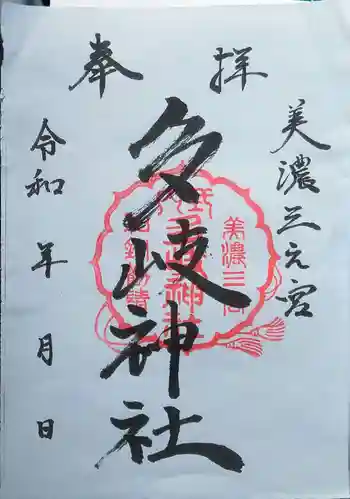 奉拝
美濃三之宮
多岐神社
令和 年 月 日
美濃三宮